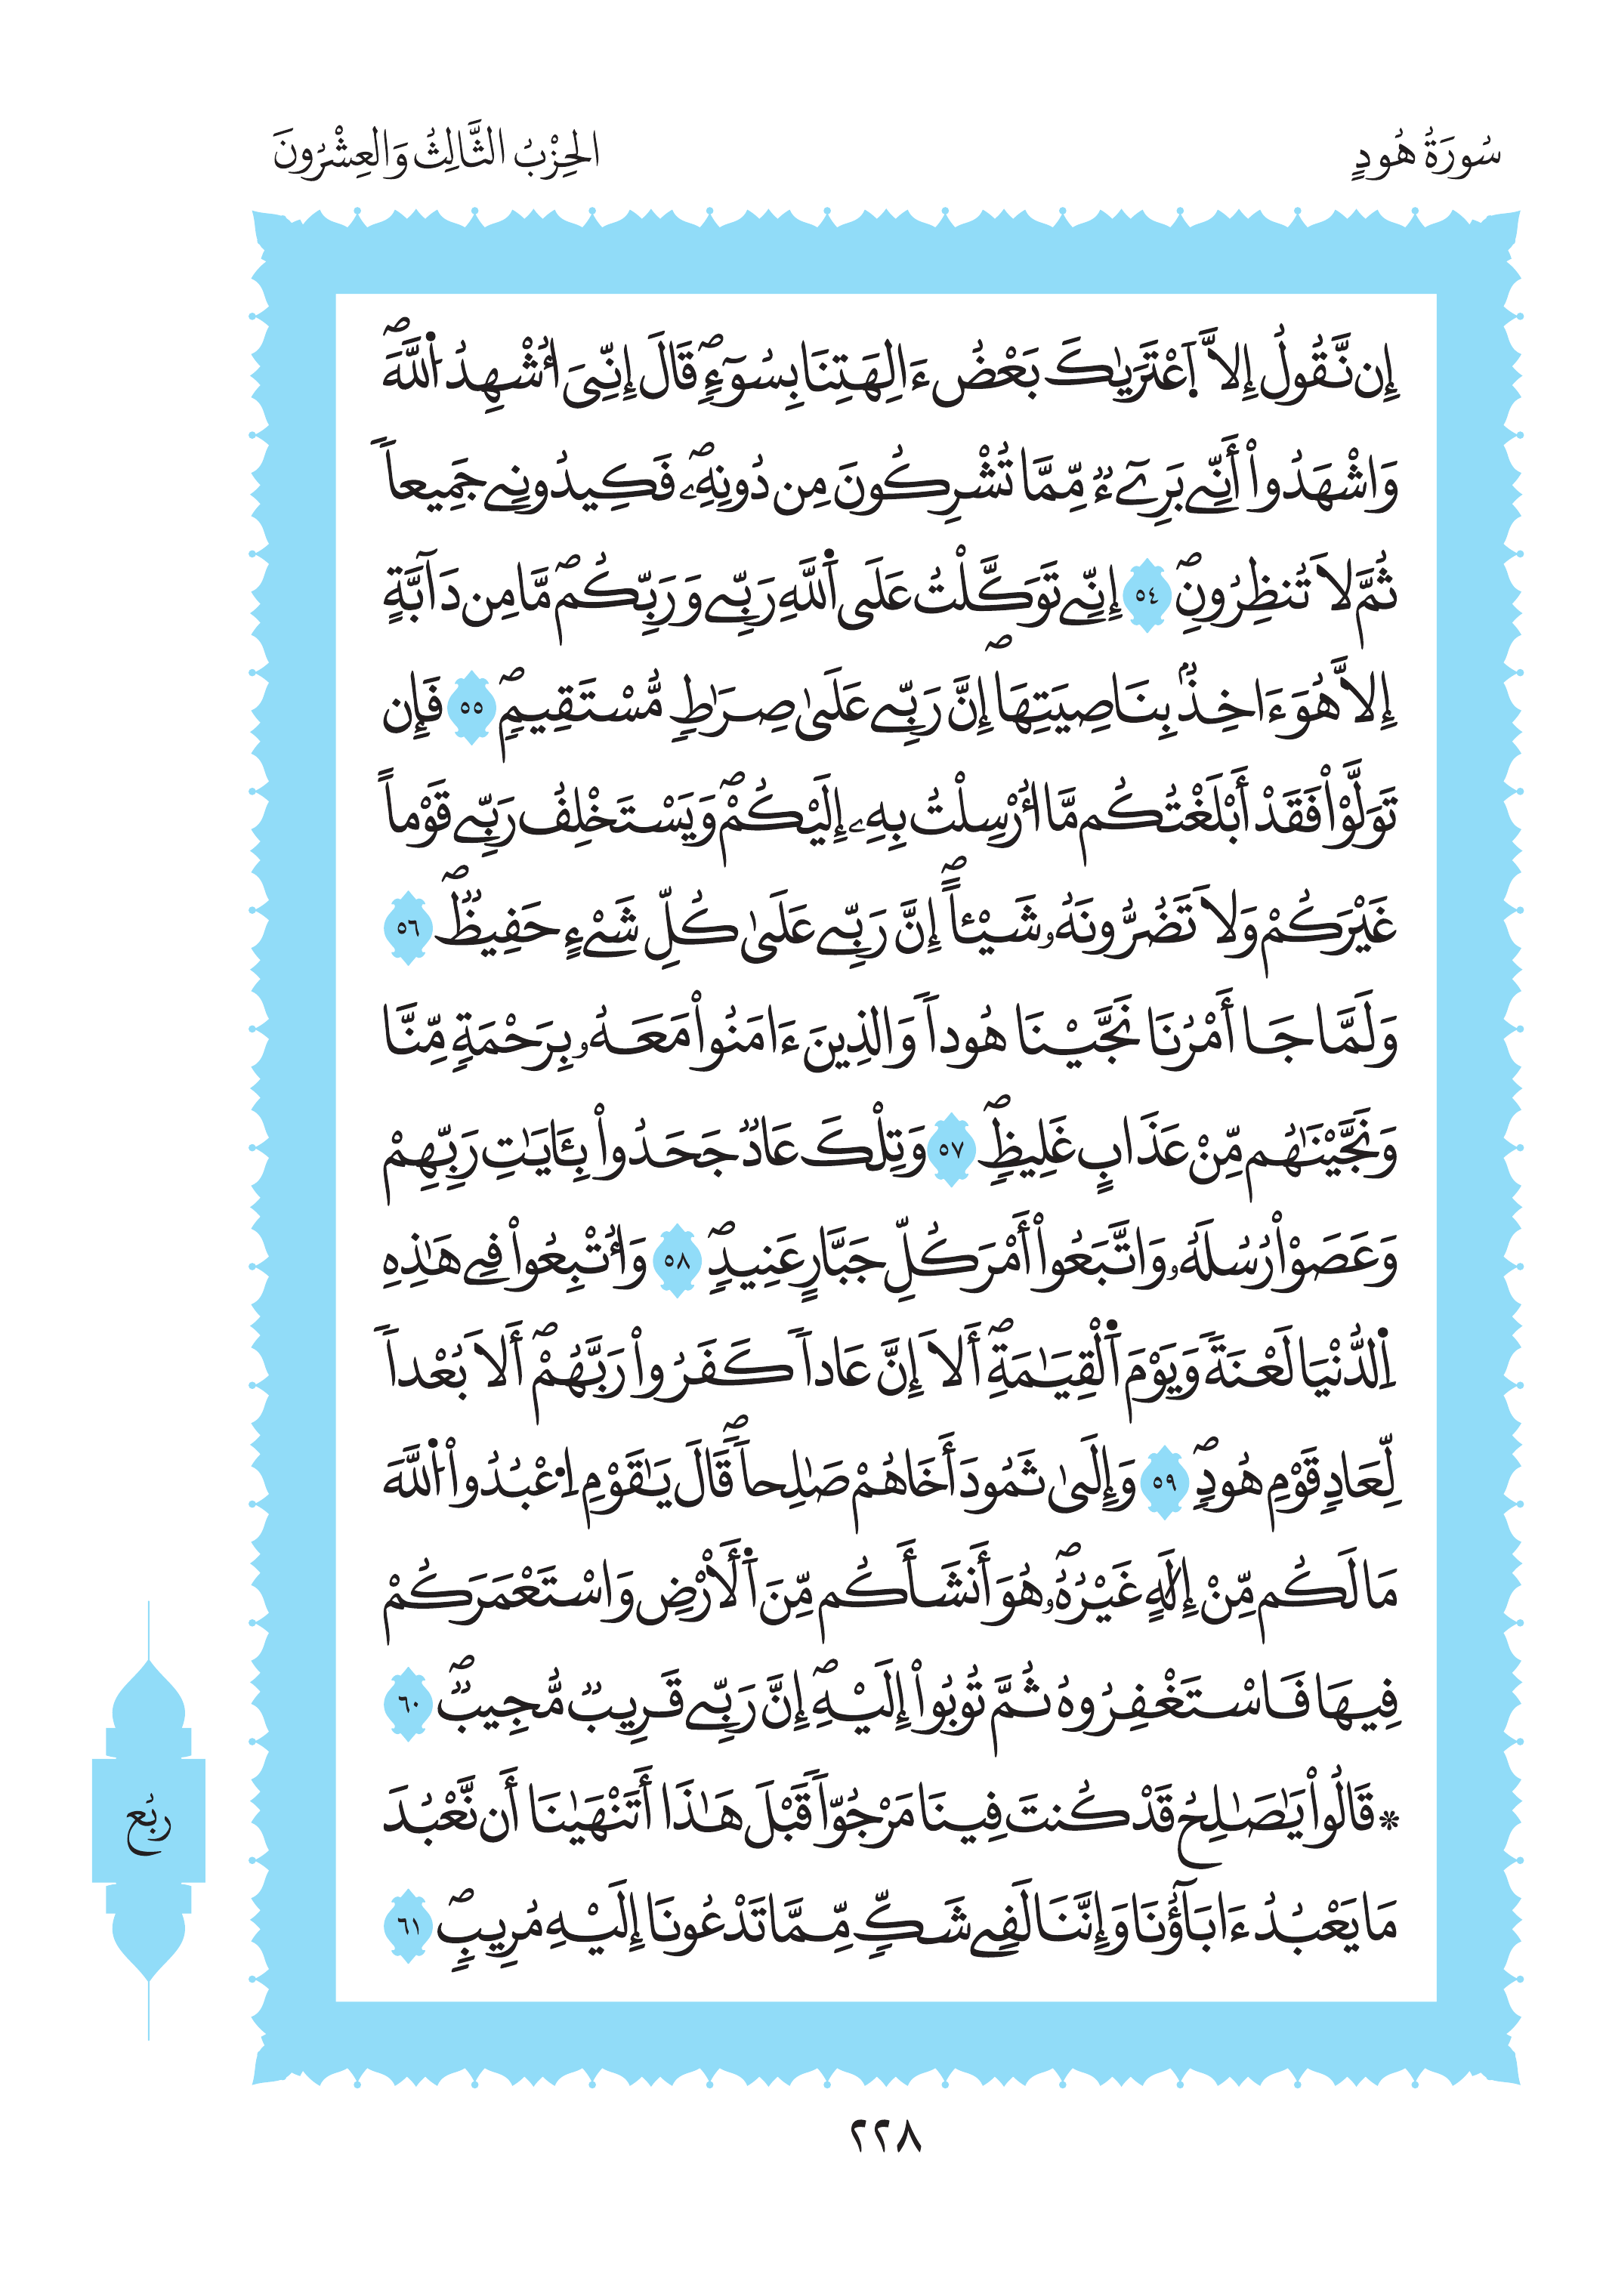 سُورَةُ هُودٍ
الحِزْبُ الثَّالِثُ وَالعِشْرُونَ
إِن نَّقُولُ إِلاَّ اَعْتَرَيٰكَ بَعْضُ ءَالِهَتِنَا بِسُوٓءٍۖ قَالَ إِنِّيَ أُشْهِدُ اُللَّهَۖ
وَاشْهَدُواْ أَنِّے بَرِےٓءٞ مِّمَّا تُشْرِكُونَ مِن دُونِهِۦۖ فَكِيدُونِے جَمِيعاٗ
ثُمَّ لاَ تُنظِرُونِۖ ٥٤ إِنِّے تَوَكَّلْتُ عَلَى اَللَّهِ رَبِّے وَرَبِّكُمۖ مَّا مِن دَآبَّةٍ
إِلاَّ هُوَ ءَاخِذُۢ بِنَاصِيَتِهَاۖ إِنَّ رَبِّے عَلَىٰ صِرَٰطٖ مُّسْتَقِيمٖۖ ٥٥ فَإِن
تَوَلَّوْاْ فَقَدْ أَبْلَغْتُكُم مَّا أُرْسِلْتُ بِهِۦ إِلَيْكُمْۖ وَيَسْتَخْلِفُ رَبِّے قَوْماً
غَيْرَكُمْ وَلاَ تَضُرُّونَهُۥ شَيْـٔاًۖ إِنَّ رَبِّے عَلَىٰ كُلِّ شَےْءٍ حَفِيظٞۖ ٥٦
وَلَمَّا جَا أَمْرُنَا نَجَّيْنَا هُوداٗ وَالذِينَ ءَامَنُواْ مَعَهُۥ بِرَحْمَةٖ مِّنَّا
وَنَجَّيْنَٰهُم مِّنْ عَذَابٍ غَلِيظٖۖ ٥٧ وَتِلْكَ عَادٞ جَحَدُواْ بِـَٔايَٰتِ رَبِّهِمْ
وَعَصَوْاْ رُسُلَهُۥ وَاتَّبَعُواْ أَمْرَ كُلِّ جَبَّارٍ عَنِيدٖۖ ٥٨ وَأُتْبِعُواْ فِے هَٰذِهِ
اِلدُّنْيَا لَعْنَةٗ وَيَوْمَ اَلْقِيَٰمَةِۖ أَلاَ إِنَّ عَاداٗ كَفَرُواْ رَبَّهُمْۖ أَلاَ بُعْداٗ
لِّعَادٖ قَوْمِ هُودٖۖ ٥٩ وَإِلَىٰ ثَمُودَ أَخَاهُمْ صَٰلِحاٗۖ قَالَ يَٰقَوْمِ اِعْبُدُواْ اُللَّهَ
مَا لَكُم مِّنْ إِلَٰهٍ غَيْرُهُۥۖ هُوَ أَنشَأَكُم مِّنَ اَلْأَرْضِ وَاسْتَعْمَرَكُمْ
فِيهَا فَاسْتَغْفِرُوهُ ثُمَّ تُوبُواْ إِلَيْهِۖ إِنَّ رَبِّے قَرِيبٞ مُّجِيبٞۖ ٦٠
* قَالُواْ يَٰصَٰلِحُ قَدْ كُنتَ فِينَا مَرْجُوّاٗ قَبْلَ هَٰذَا أَتَنْهَيٰنَا أَن نَّعْبُدَ
مَا يَعْبُدُ ءَابَآؤُنَا وَإِنَّنَا لَفِے شَكّٖ مِّمَّا تَدْعُونَا إِلَيْهِ مُرِيبٖۖ ٦١
ربُع
٢٢٨